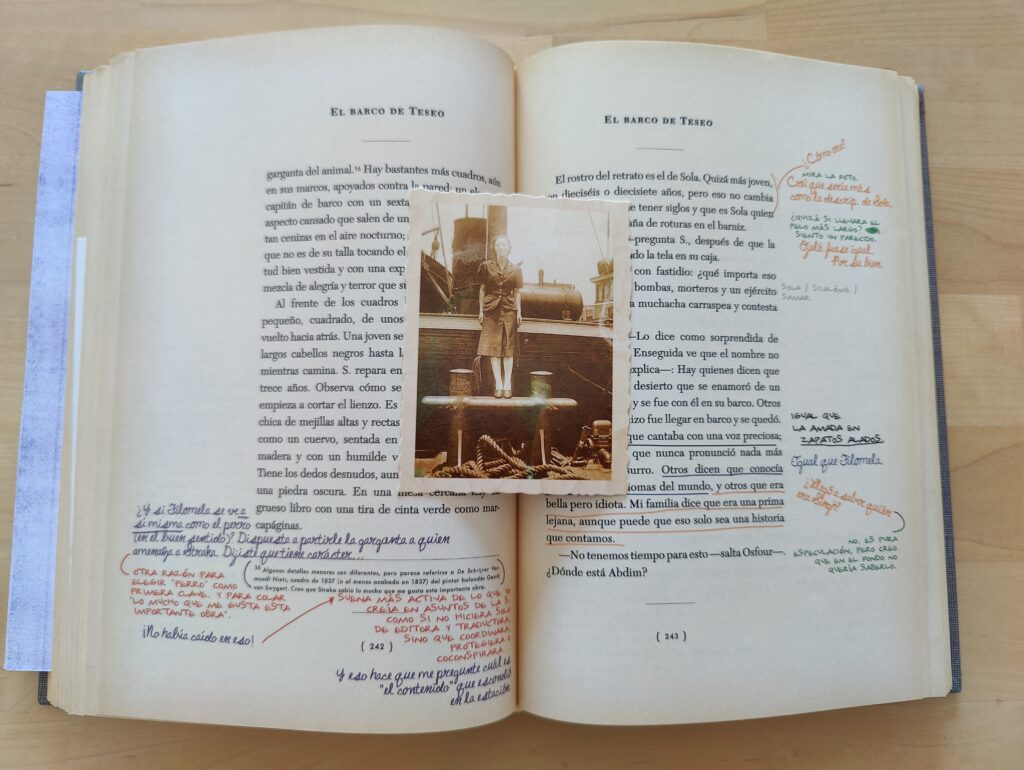 EL BARCO DE TESEO
garganta del animal.¹⁶ Hay bastantes más cuadros, aún
en sus marcos, apoyados contra la pared: un
capitán de barco con un
aspecto cansado que salen de un
tan cenizas en el aire nocturno;
que no es de su talla tocando el
tud bien vestida y con una
mezcla de alegría y terror que
Al frente de los cuadros
pequeño, cuadrado, de unos
vuelto hacia atrás. Una joven
largos cabellos negros hasta
mientras camina. S. repara en
trece años. Observa cómo se
empieza a cortar el lienzo. Es
chica de mejillas altas y rectas
como un cuervo, sentada en
madera y con un humilde
Tiene los dedos desnudos,
una piedra oscura. En una mesa cercana hay
grueso libro con una tira de cinta verde como mar-
capáginas.
¿Y si Filomela se ve a
sí misma como el perro
(en el buen sentido)? Dispuesta a partirle la garganta a quien
amenaza a Straka. Dijiste que tiene carácter...
¹⁶ Algunos detalles menores son diferentes, pero parece referirse a De Schrijver Ver
moedt Niets, cuadro de 1837 (o al menos acabado en 1837) del pintor holandés
van Swygert. Creo que Straka sabía lo mucho que me gusta esta importante obra.
OTRA RAZÓN PARA
ELEGIR "PERRO" COMO
PRIMERA CLAVE. Y PARA COLAR
"LO MUCHO QUE ME GUSTA ESTA
IMPORTANTE OBRA".
¡No había caído en eso!
SUENA MÁS ACTIVA DE LO QUE
CREÍA EN ASUNTOS DE LA S,
COMO SI NO HICIERA SOLO
DE EDITORA Y TRADUCTORA,
SINO QUE COORDINARA,
PROTEGIERA O
COCONSPIRARA...
{ 242 }
Y eso hace que me pregunte cuál es
"el contenido" que escondió
en la estación
EL BARCO DE TESEO
El rostro del retrato es el de Sola. Quizá más joven,
dieciséis o diecisiete años, pero eso no cambia
de tener siglos y que es Sola quien
de roturas en el barniz.
—pregunta S., después de que la
la tela en su caja.
con fastidio: ¿qué importa eso
bombas, morteros y un ejército
a muchacha carraspea y contesta
—Lo dice como sorprendida de
Enseguida ve que el nombre no
explica—: Hay quienes dicen que
desierto que se enamoró de un
y se fue con él en su barco. Otros
fue llegar en barco y se quedó.
que cantaba con una voz preciosa;
que nunca pronunció nada más
Otros dicen que conocía
del mundo, y otros que era
bella pero idiota. Mi familia dice que era una prima
lejana, aunque puede que eso solo sea una historia
que contamos.
—No tenemos tiempo para esto —salta Osfour—.
¿Dónde está Abdim?
{ 243 }
¡Cómo era!
MIRA LA FOTO.
Creí que sería más
como la descrip. de Sola
¿QUIZÁ SI LLEVARA EL
PELO MÁS LARGO?
SIENTO UN PARECIDO.
Ojalá fuese igual
Por su bien
SOLA / SZALÓMÉ /
SAMAR
IGUAL QUE
LA AMADA EN
ZAPATOS ALADOS
Igual que Filomela
¿Llegó a saber quién
era
NO. ES PURA
ESPECULACIÓN, PERO CREO
QUE EN EL FONDO NO
QUERÍA SABERLO.